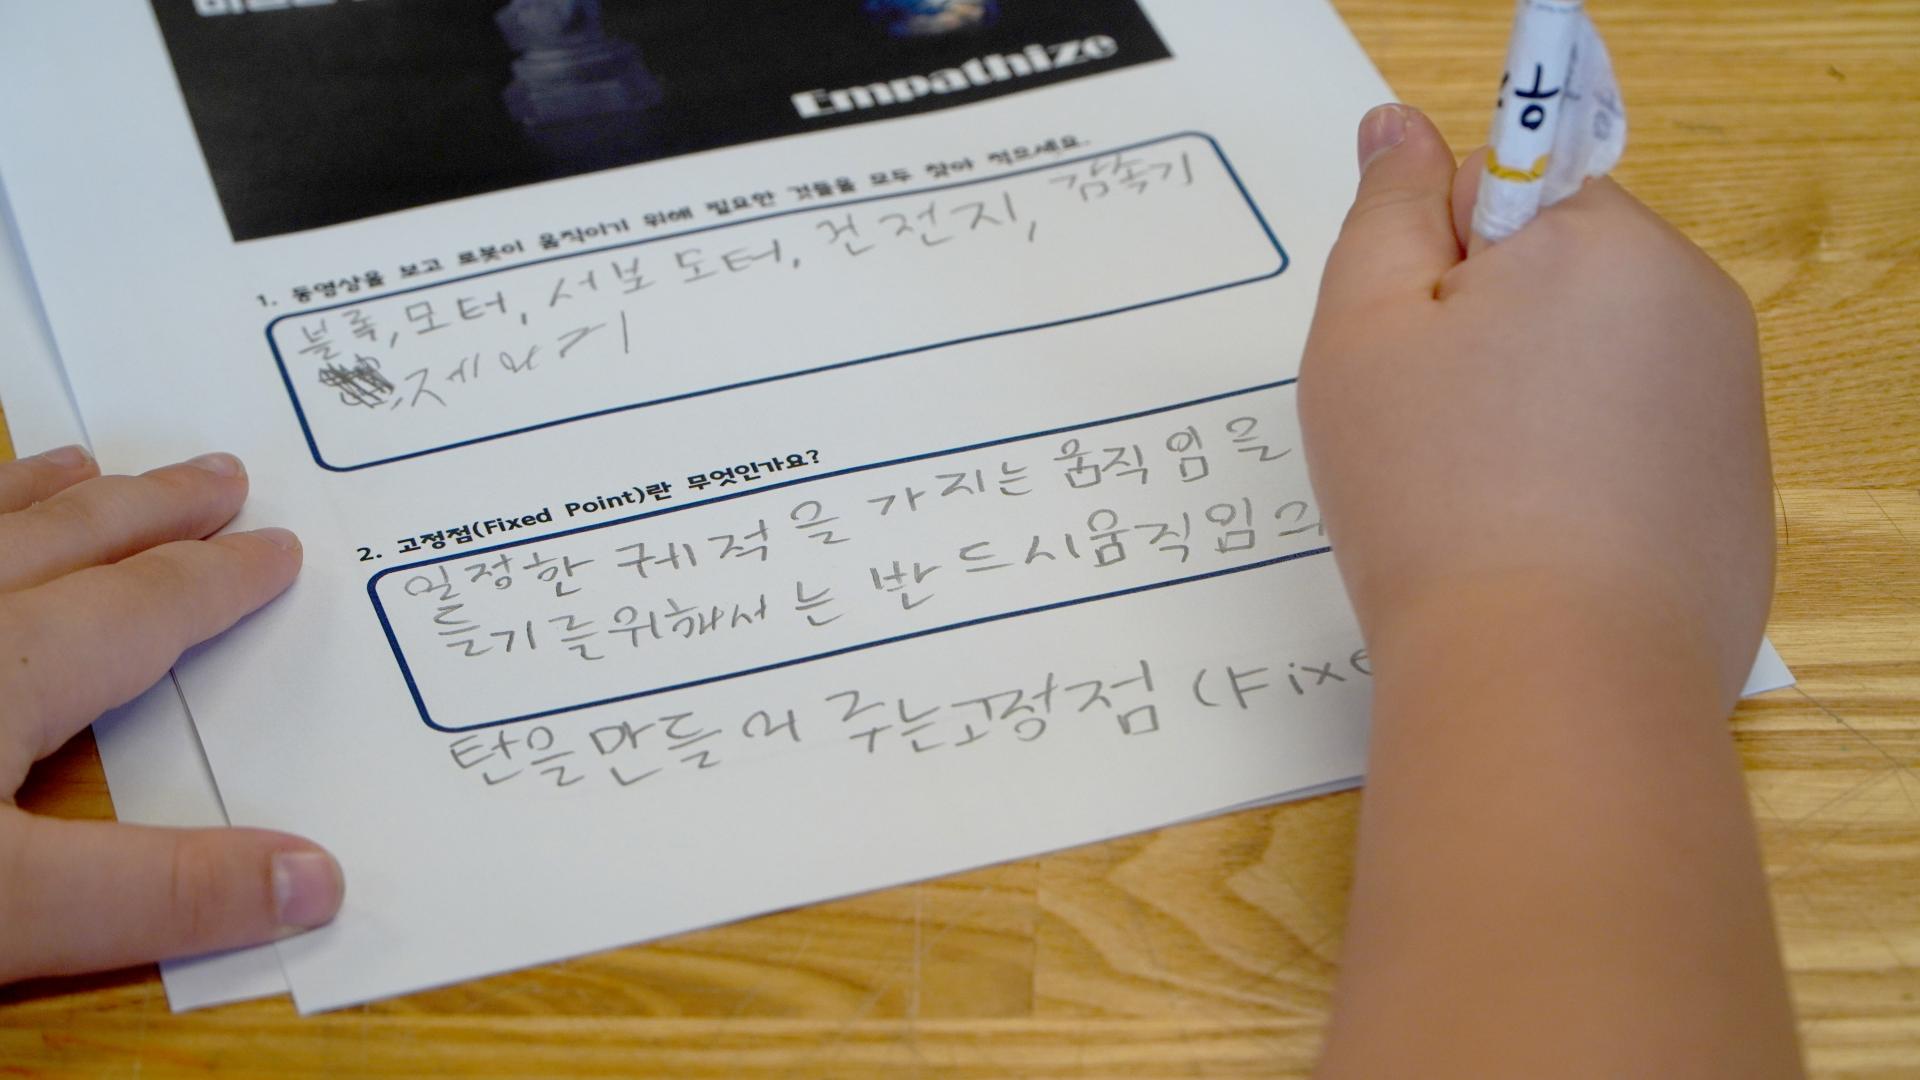 Empathize
1. 동영상을 보고 로봇이 움직이기 위해 필요한 것들을 모두 찾아 적으세요.
블록, 모터, 서보 모터, 건전지, 감속기
, 제어기
2. 고정점(Fixed Point)란 무엇인가요?
일정한 궤적을 가지는 움직임을
들기를위해서는 반드시움직임의
탄을만들어 주는고정점 (Fixe